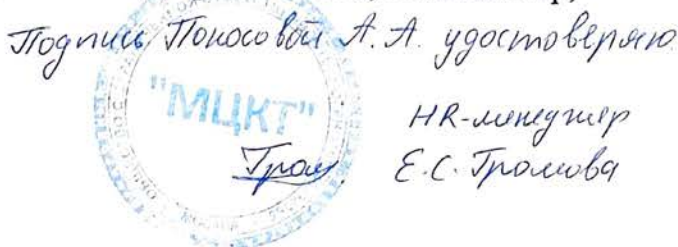 Подпись Поносовой А.А. удостоверяю
"МЦКТ"
HR-менеджер
Гром Е.С. Громова